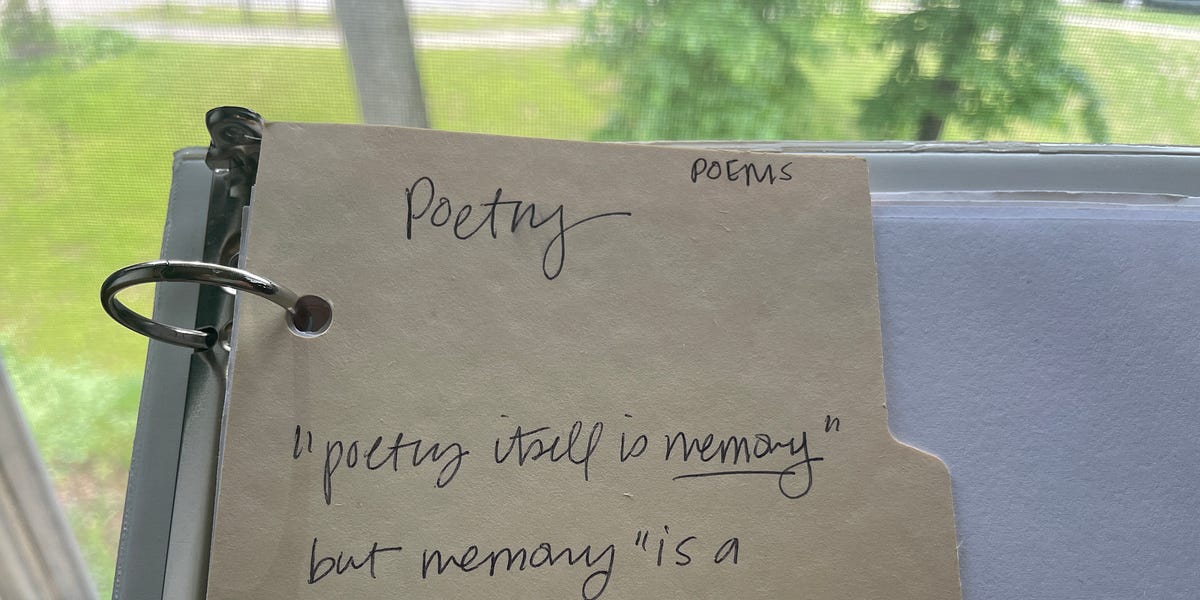 POEMS
Poetry
"poetry itself is memory"
but memory "is a